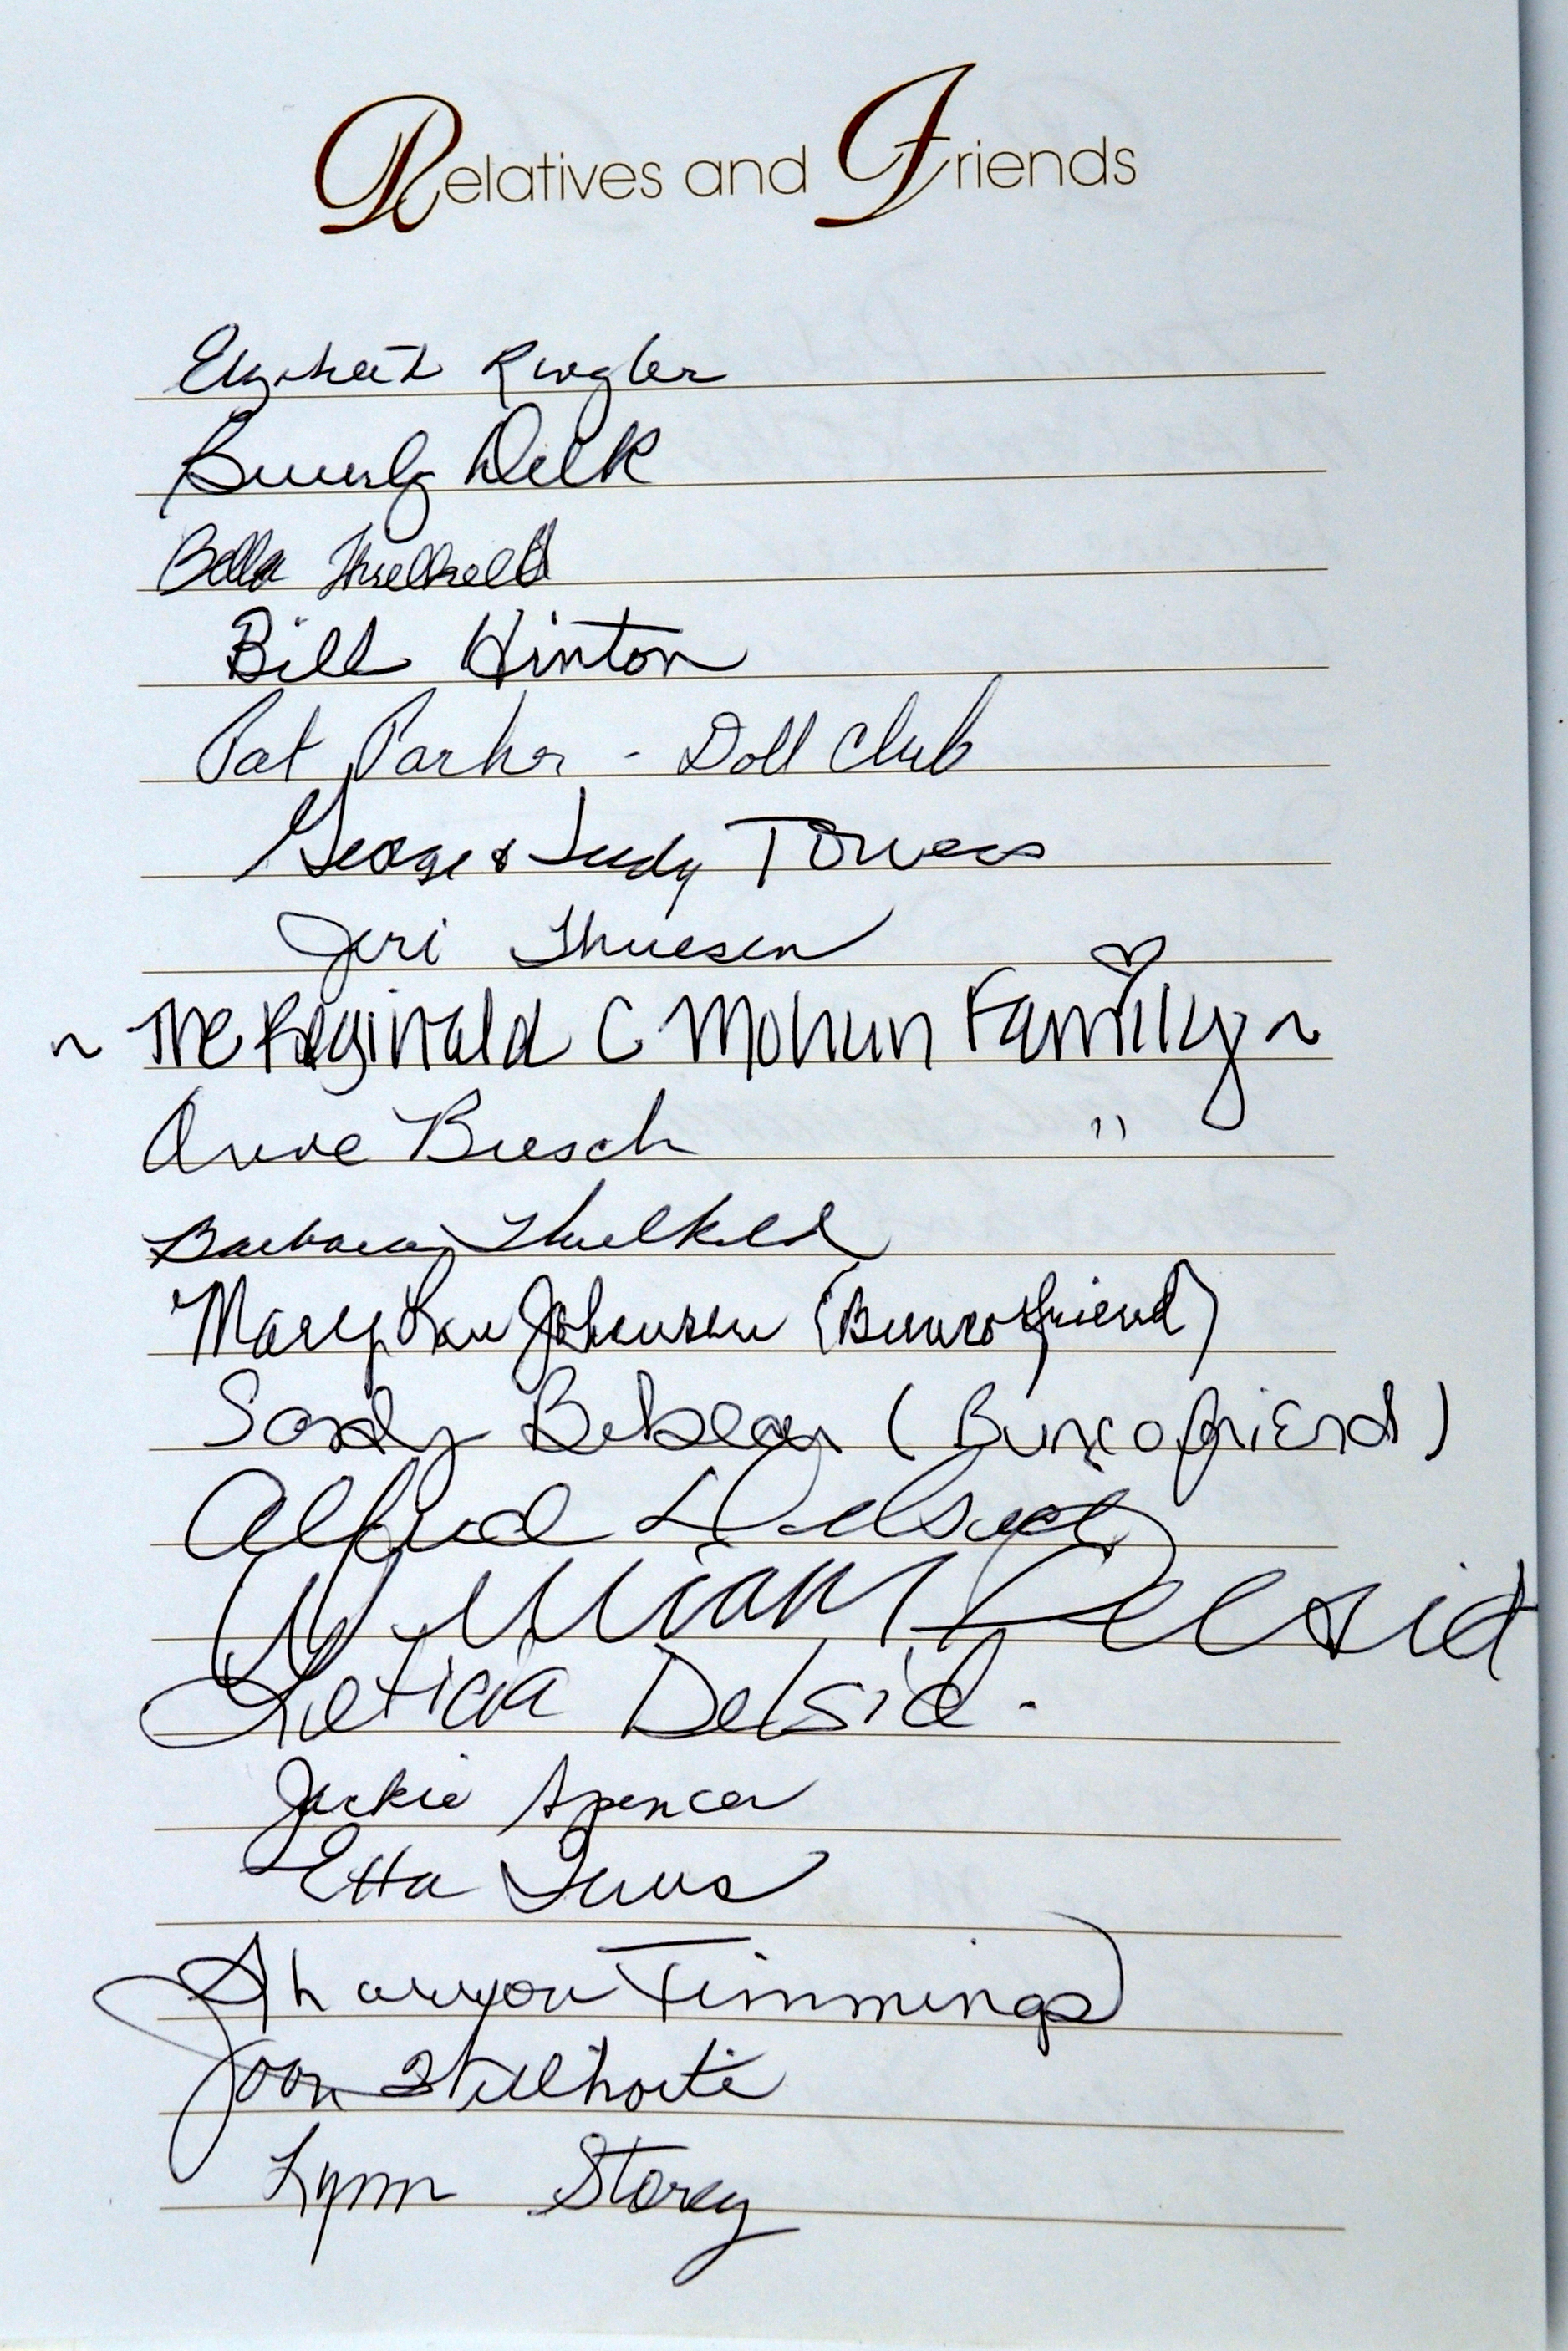 Relatives and Friends
Elizabeth
Beverly Delk
Bella Threlkeld
Bill Hinton
Pat Parker - Doll Club
George & Judy Towers
Jeri Thuesen
~ The Reginald C Mohun Family ~
Anne Busch "
Barbara Threlkeld
Mary Lou Johnson (Bunco friend)
Sandy (Bunco friend)
Alfred Delsid
William Delsid
Leticia Delsid.
Jackie Spencer
Etta
Sharryon Timmings
Joan
Lynn Storey